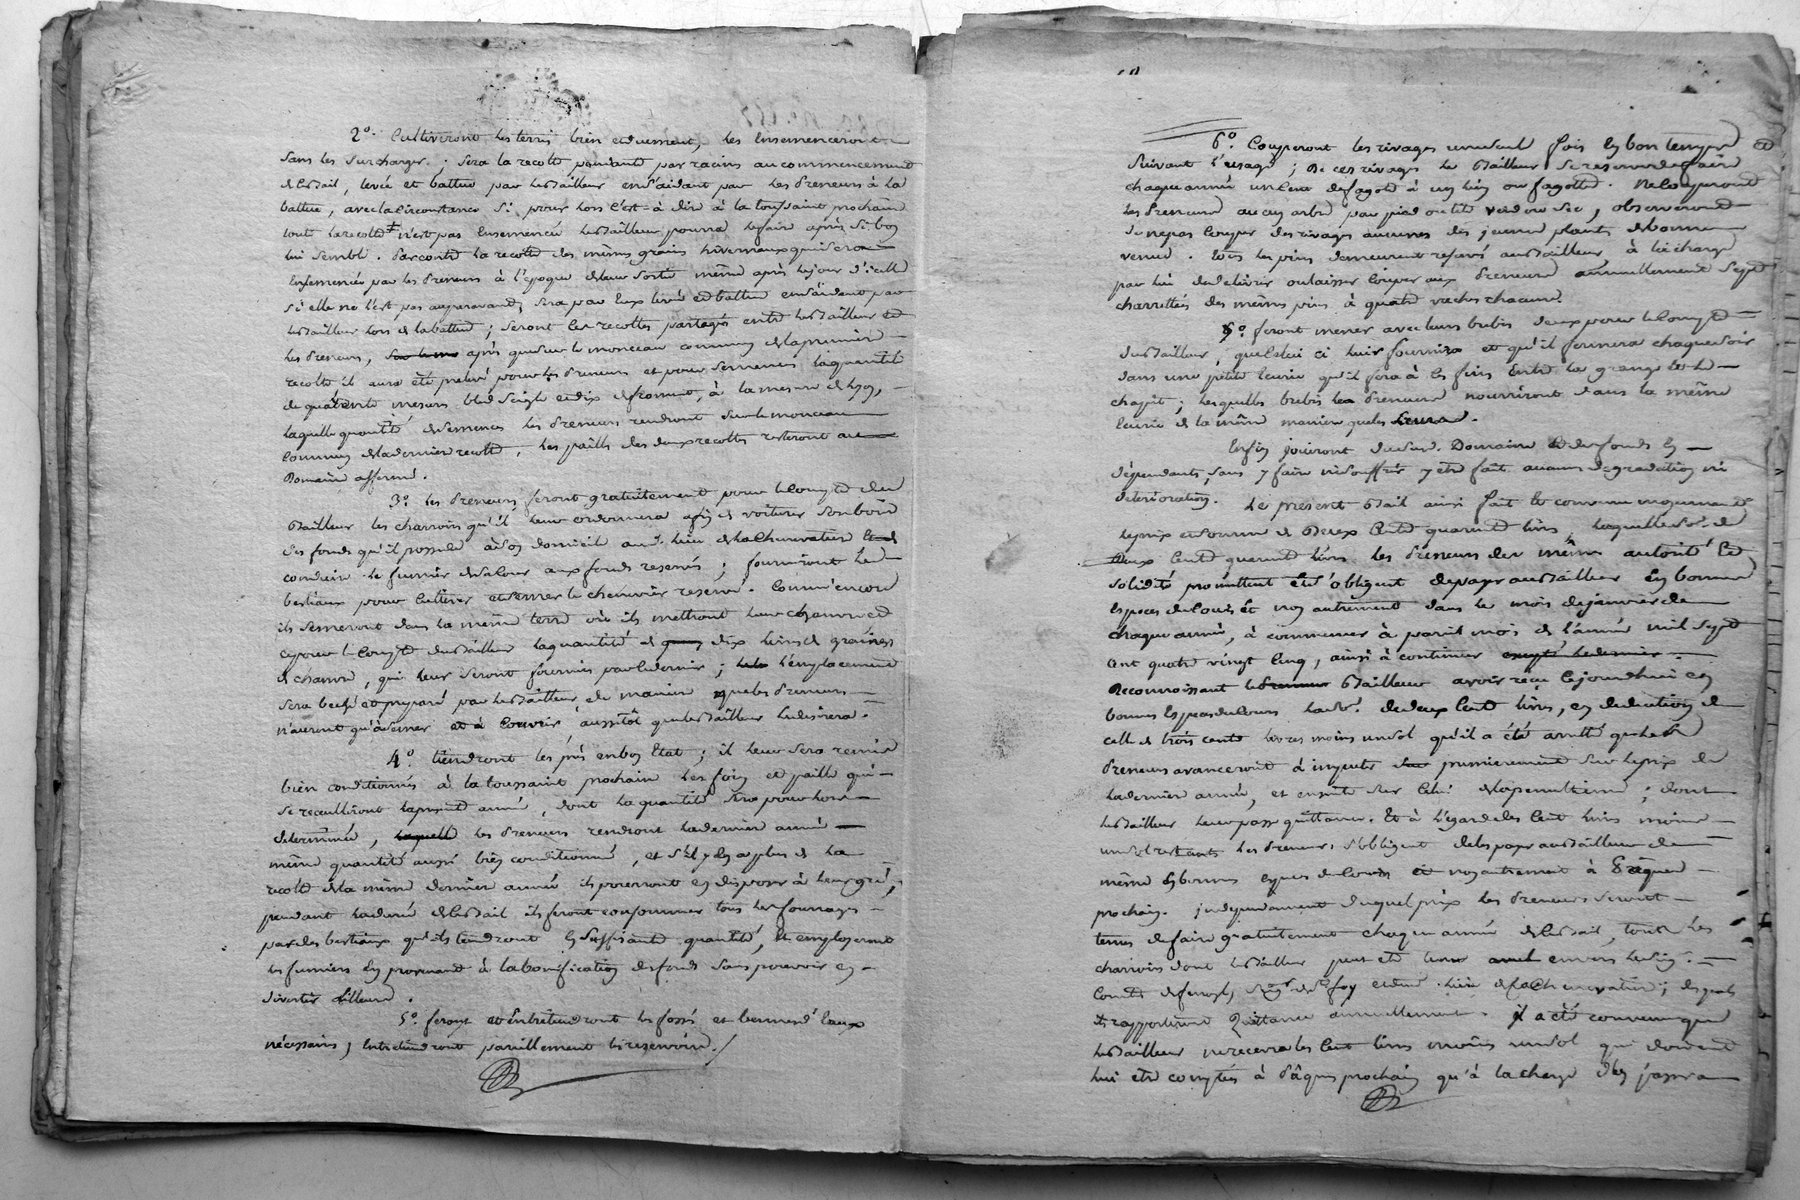 2° Cultiveront les terres bien et duement, les ensemenceront
sans les surcharger. Sera la recolte pendante par racine au commencement
du Bail, levée et battue par le Bailleur en s'aidant par les Preneurs à la
battue, avec la circonstance si pour lors c'est à dire à la toussaint prochaine
tout la recolte n'est pas ensemencé le Bailleur pourra le faire après si bon
lui semble. Par contre la recolte des mêmes grains hivernaux qui sera
ensemencée par les Preneurs à l'époque de leur sortie même après le jour d'icelle
si elle ne l'est pas auparavant, sera par eux levée et battue en s'aidant par
le Bailleur lors de la battue; seront les recoltes partagés entre le Bailleur et
les Preneurs, après que sur le monceau commun de la premiere
recolte il aura été prelevé pour les Preneurs et pour semences la quantité
de quarante mesures bled seigle et dix de froment, à la mesure de
laquelle quantité de semences les Preneurs rendront sur le monceau
commun de la derniere recolte, les pailles des deux recoltes resteront au
Domaine affermé.
3° les Preneurs feront gratuitement pour le compte du
Bailleur les charrois qu'il leur ordonnera afin de voiturer
ses fonds qu'il possede à son domicile au d. lieu de la Chenevatiere et de
conduire le fumier aux fonds reservés; fourniront les
bestiaux pour cultiver et semer la cheneviere reservé. Comm'encore
ils semeront dans la même terre où ils mettront leur chanvre et
ce pour le compte du Bailleur la quantité de dix livres de graines
de chanvre, qui leur seront fournies par le dernier; l'emplacement
sera beché et preparé par le Bailleur, de maniere que les Preneurs
n'auront qu'à semer et à couvrir aussitôt que le Bailleur le desirera.
4° tiendront les prés en bon état; il leur sera remis
bien conditionnés à la toussaint prochain les foin et paille qui
se recueilliront la presente année, dont la quantité sera pour lors
determinée, les Preneurs rendront la derniere année
même quantité aussi bien conditionné, et s'il y en a plus de la
recolte de la même derniere année ils pourront en disposer à leur gré,
pendant la durée du Bail ils feront consommer tous les fourrages
par des bestiaux qu'ils tiendront en suffisante quantité, et employeront
les fumiers en provenant à la bonification des fonds sans pouvoir en
divertir ailleurs.
5° feront et entretiendront les fossés et d'eaux
nécessaires, entretiendront pareillement les reservoirs.
6° Couperont les rivages une seule fois en bon temps et
suivant l'usage; de ces rivages le Bailleur se reserve de faire
chaque année un cent de fagots à un lien ou fagotte. Ne couperont
les Preneurs aucun arbre par pied ou tête verd ou sec, observeront
de ne pas couper des rivages aucunes des jeunes plants de bonne
venue. tous les pins demeurent reservés au Bailleur, à la charge
par lui de delivrer ou laisser couper aux Preneurs annuellement sept
charrettées des mêmes pins à quatre vaches chacune.
7° feront mener avec leurs brebis deux pour le compte
du Bailleur, que celui ci leur fournira et qu'il fermera chaque soir
dans une petite écurie qu'il fera à ces fins entre la grange et le
chapit; lesquelles brebis les Preneurs nourriront dans la même
écurie de la même maniere que les leurs.
Enfin jouiront du susd. Domaine et des fonds en
dépendants, sans y faire ni souffrir y être fait aucune degradation ni
deterioration. Le present Bail ainsi fait et convenu moyennant
le prix et somme de Deux Cent quarante livres, laquelle so. de
Deux Cent quarante livres les Preneurs de même autorité et
solidité promettent et s'obligent de payer au Bailleur en bonnes
especes de cours et non autrement dans le mois de janvier de
chaque année, à commencer à pareil mois de l'année mil sept
cent quatre vingt cinq, ainsi à continuer excepté la derniere.
Reconnoissant le Bailleur avoir reçu ce jourdhui en
bonnes Especes du cours la so. de deux cent livres, en deduction de
celle de trois cents livres moins un sol qu'il a été arretté que les
Preneurs avanceroient à imputer premierement sur le prix de
la derniere année, et ensuite sur celui de la penultieme; dont
le Bailleur leur passe quittance. Et à l'egard des cent livres moins
un sol restants les Preneurs s'obligent de les payer au Bailleur de
même en bonnes especes de cours et non autrement à Pâques
prochain. Independament duquel prix les Preneurs seront
tenus de faire gratuitement chaque année du Bail, toutes les
charrois dont le Bailleur peut etre tenu envers le Seig.
Comte de seig.r de S.te foy et dud. lieu de la Chenevatiere; desquels
ils rapporteront Quittance annuellement. Il a été convenu que
le Bailleur ne recevra les cent livres moins un sol qui doivent
lui etre comptés à Pâques prochain qu'à la charge d'en passer